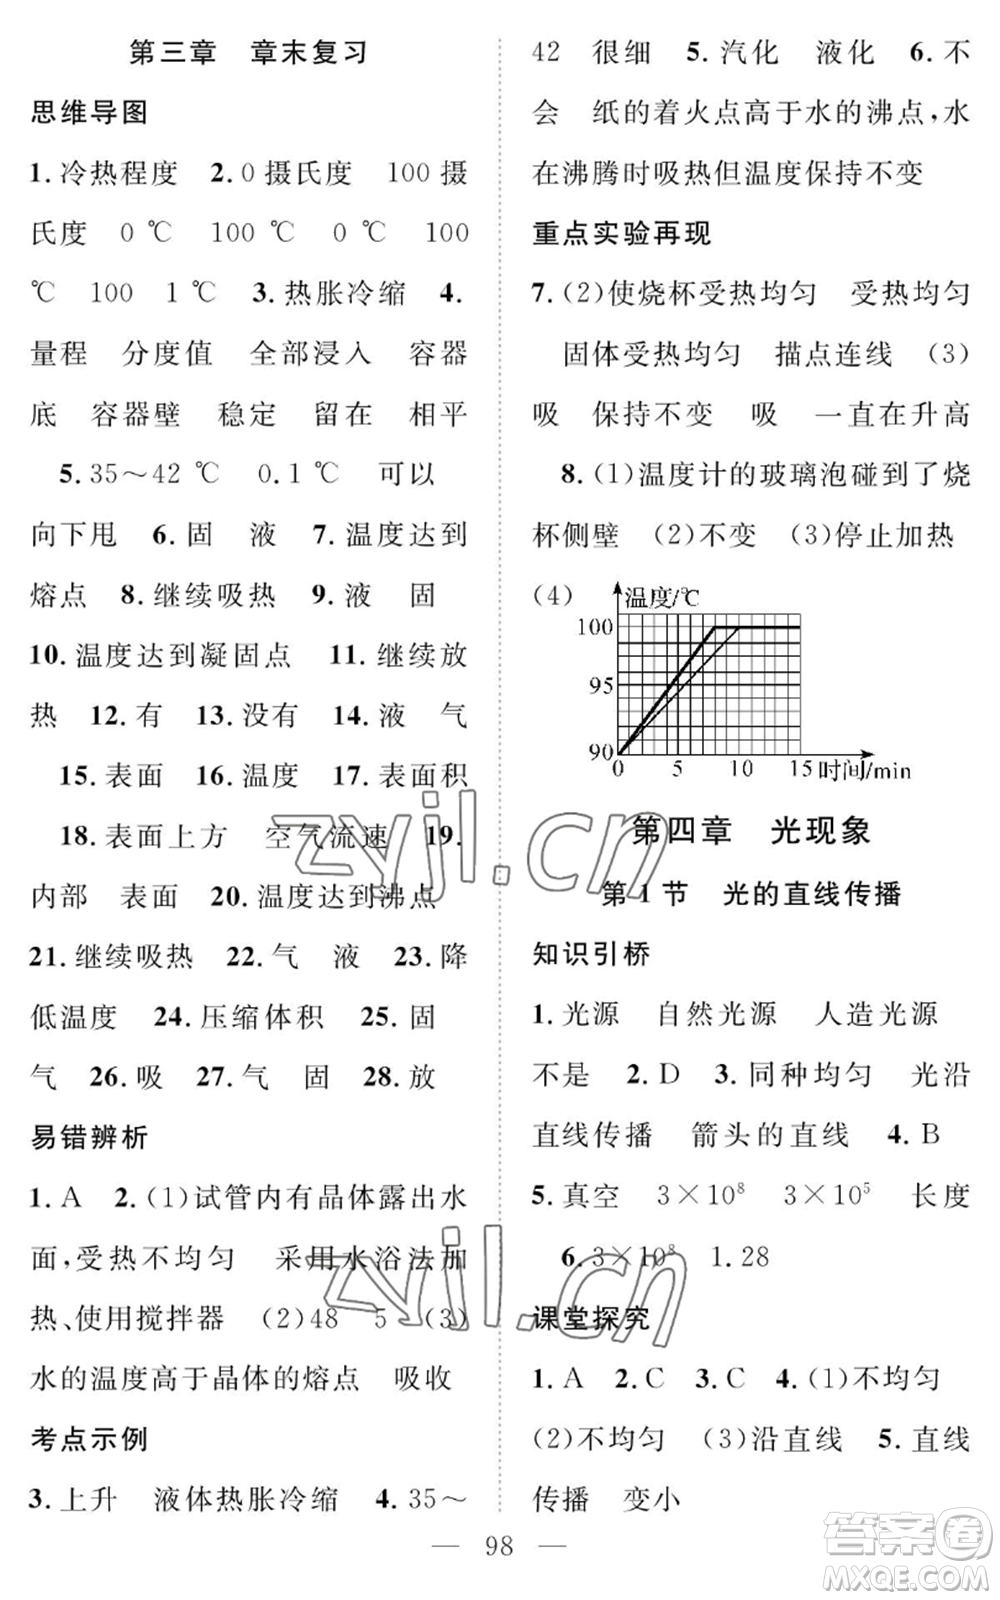 第三章　章末复习
思维导图
1.冷热程度　2.0摄氏度　100摄
氏度　0 ℃　100 ℃　0 ℃　100
℃　100　1 ℃　3.热胀冷缩　4.
量程　分度值　全部浸入　容器
底　容器壁　稳定　留在　相平
5.35～42 ℃　0.1 ℃　可以
向下甩　6.固　液　7.温度达到
熔点　8.继续吸热　9.液　固
10.温度达到凝固点　11.继续放
热　12.有　13.没有　14.液　气
15.表面　16.温度　17.表面积
18.表面上方　空气流速　19.
内部　表面　20.温度达到沸点
21.继续吸热　22.气　液　23.降
低温度　24.压缩体积　25.固
气　26.吸　27.气　固　28.放
易错辨析
1.A　2.(1)试管内有晶体露出水
面,受热不均匀　采用水浴法加
热、使用搅拌器　(2)48　5　(3)
水的温度高于晶体的熔点　吸收
考点示例
3.上升　液体热胀冷缩　4.35～
42　很细　5.汽化　液化　6.不
会　纸的着火点高于水的沸点,水
在沸腾时吸热但温度保持不变
重点实验再现
7.(2)使烧杯受热均匀　受热均匀
固体受热均匀　描点连线　(3)
吸　保持不变　吸　一直在升高
8.(1)温度计的玻璃泡碰到了烧
杯侧壁　(2)不变　(3)停止加热
(4)
温度/℃
100
95
90
0　5　10　15 时间/min
第四章　光现象
第1节　光的直线传播
知识引桥
1.光源　自然光源　人造光源
不是　2.D　3.同种均匀　光沿
直线传播　箭头的直线　4.B
5.真空　3×10⁸　3×10⁵　长度
6.3×10⁸　1.28
课堂探究
1.A　2.C　3.C　4.(1)不均匀
(2)不均匀　(3)沿直线　5.直线
传播　变小
98
zyjl.cn
zyjl.cn
答案圈
MXQE.COM